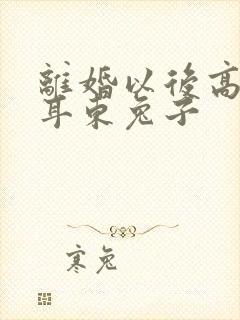 離婚以後高
耳朿兔子
寒兔